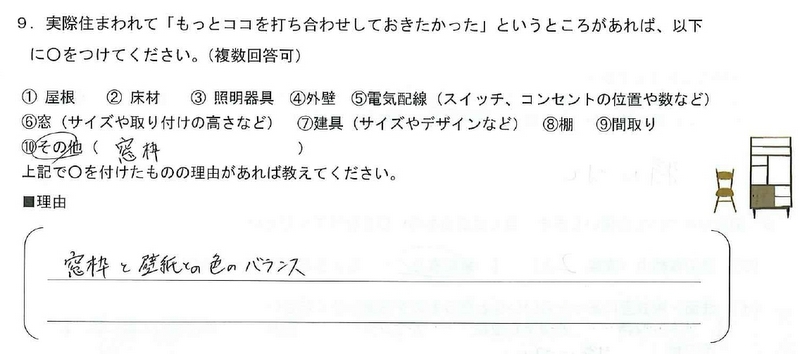 9．実際住まわれて「もっとココを打ち合わせしておきたかった」というところがあれば、以下
に〇をつけてください。（複数回答可）
① 屋根　② 床材　③ 照明器具　④外壁　⑤電気配線（スイッチ、コンセントの位置や数など）
⑥窓（サイズや取り付けの高さなど）　⑦建具（サイズやデザインなど）　⑧棚　⑨間取り
⑩その他（　窓枠　）
上記で〇を付けたものの理由があれば教えてください。
■理由
窓枠と壁紙との色のバランス